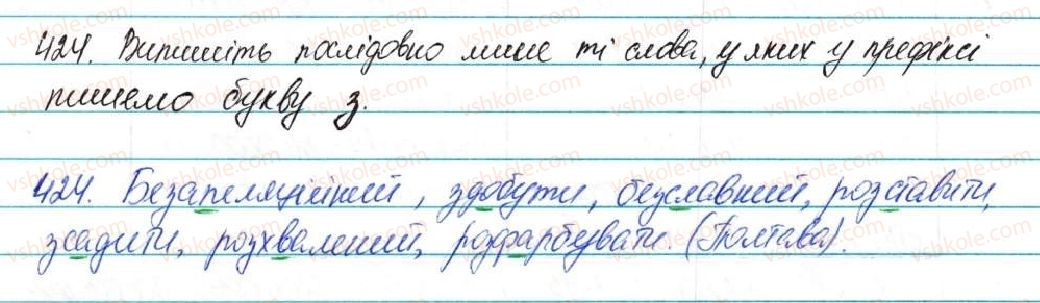 424. Випишіть послідовно лише ті слова, у яких у префіксі
пишемо букву з.
424. Безапеляційний, здобути, безславний, розставити,
зсадити, розхвалений, розфарбувати. (Полтава).